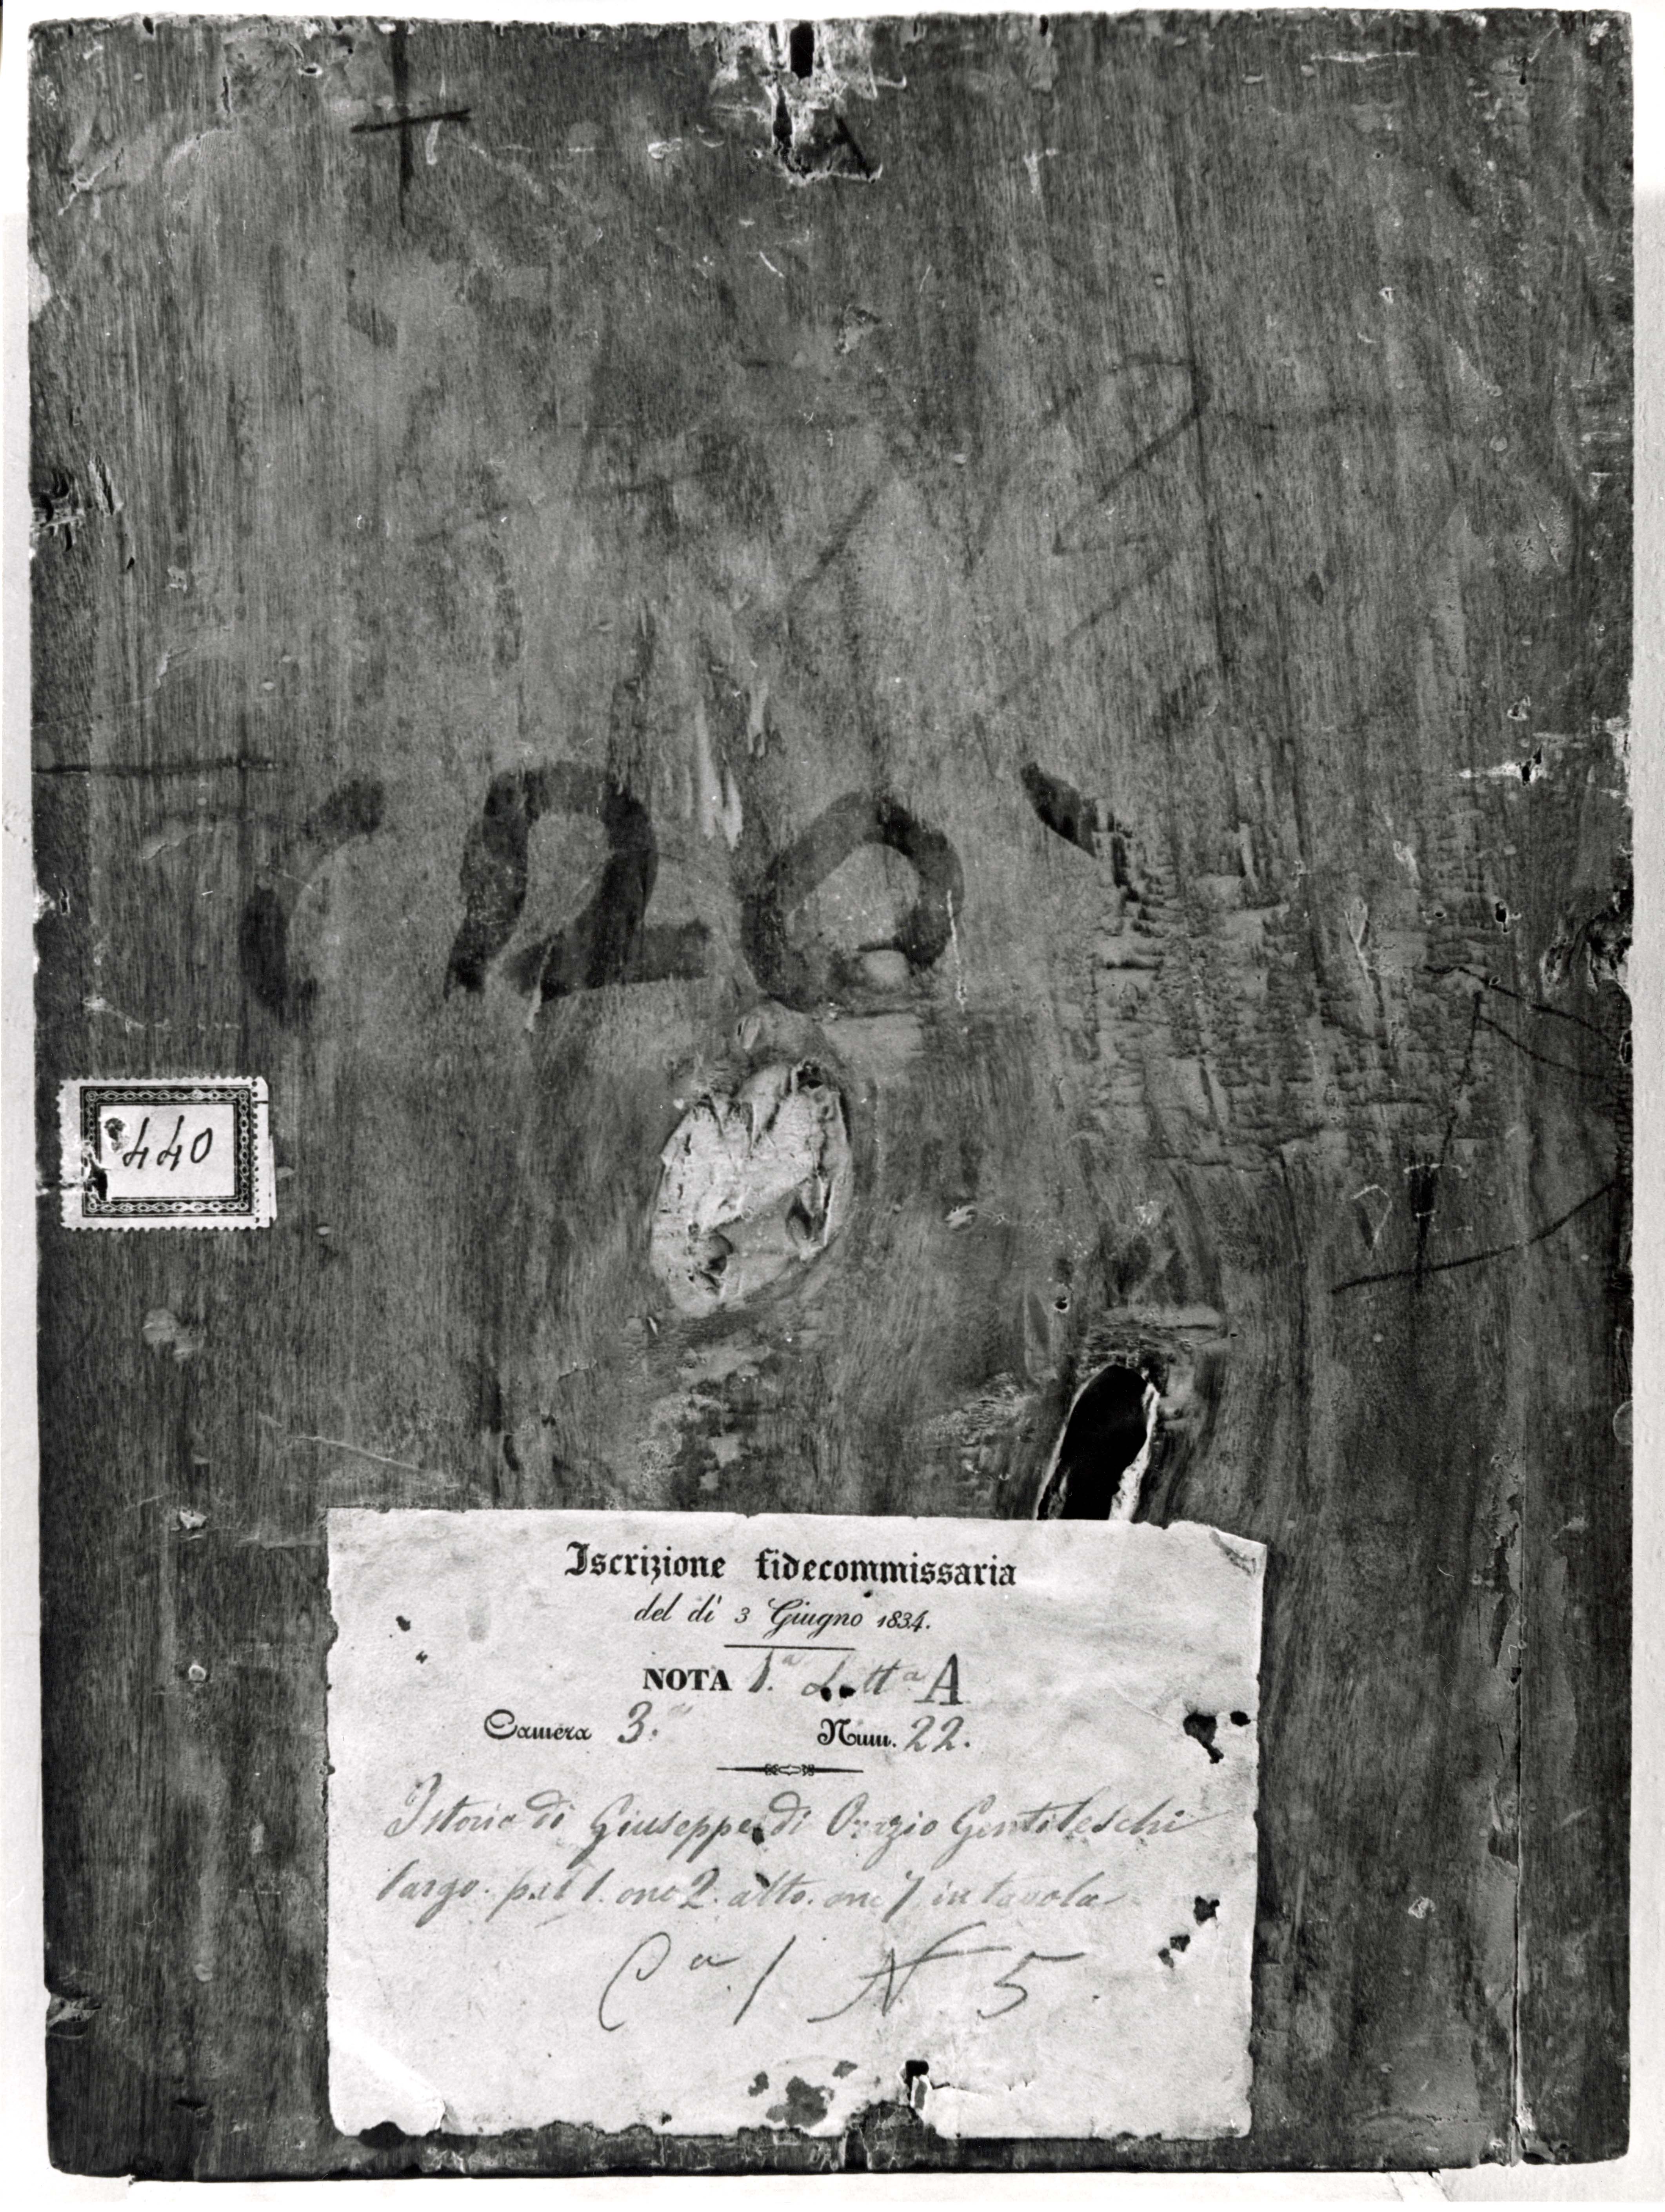 20
440
Iscrizione fidecommissaria
del di 3 Giugno 1834.
NOTA 1.ª Lettª A
Camera 3.ª Num. 22.
Istoria di Giuseppe di Orazio Gentileschi
largo. pal 1. onc 2. alto. onc 7 in tavola
Cª 1 N 5